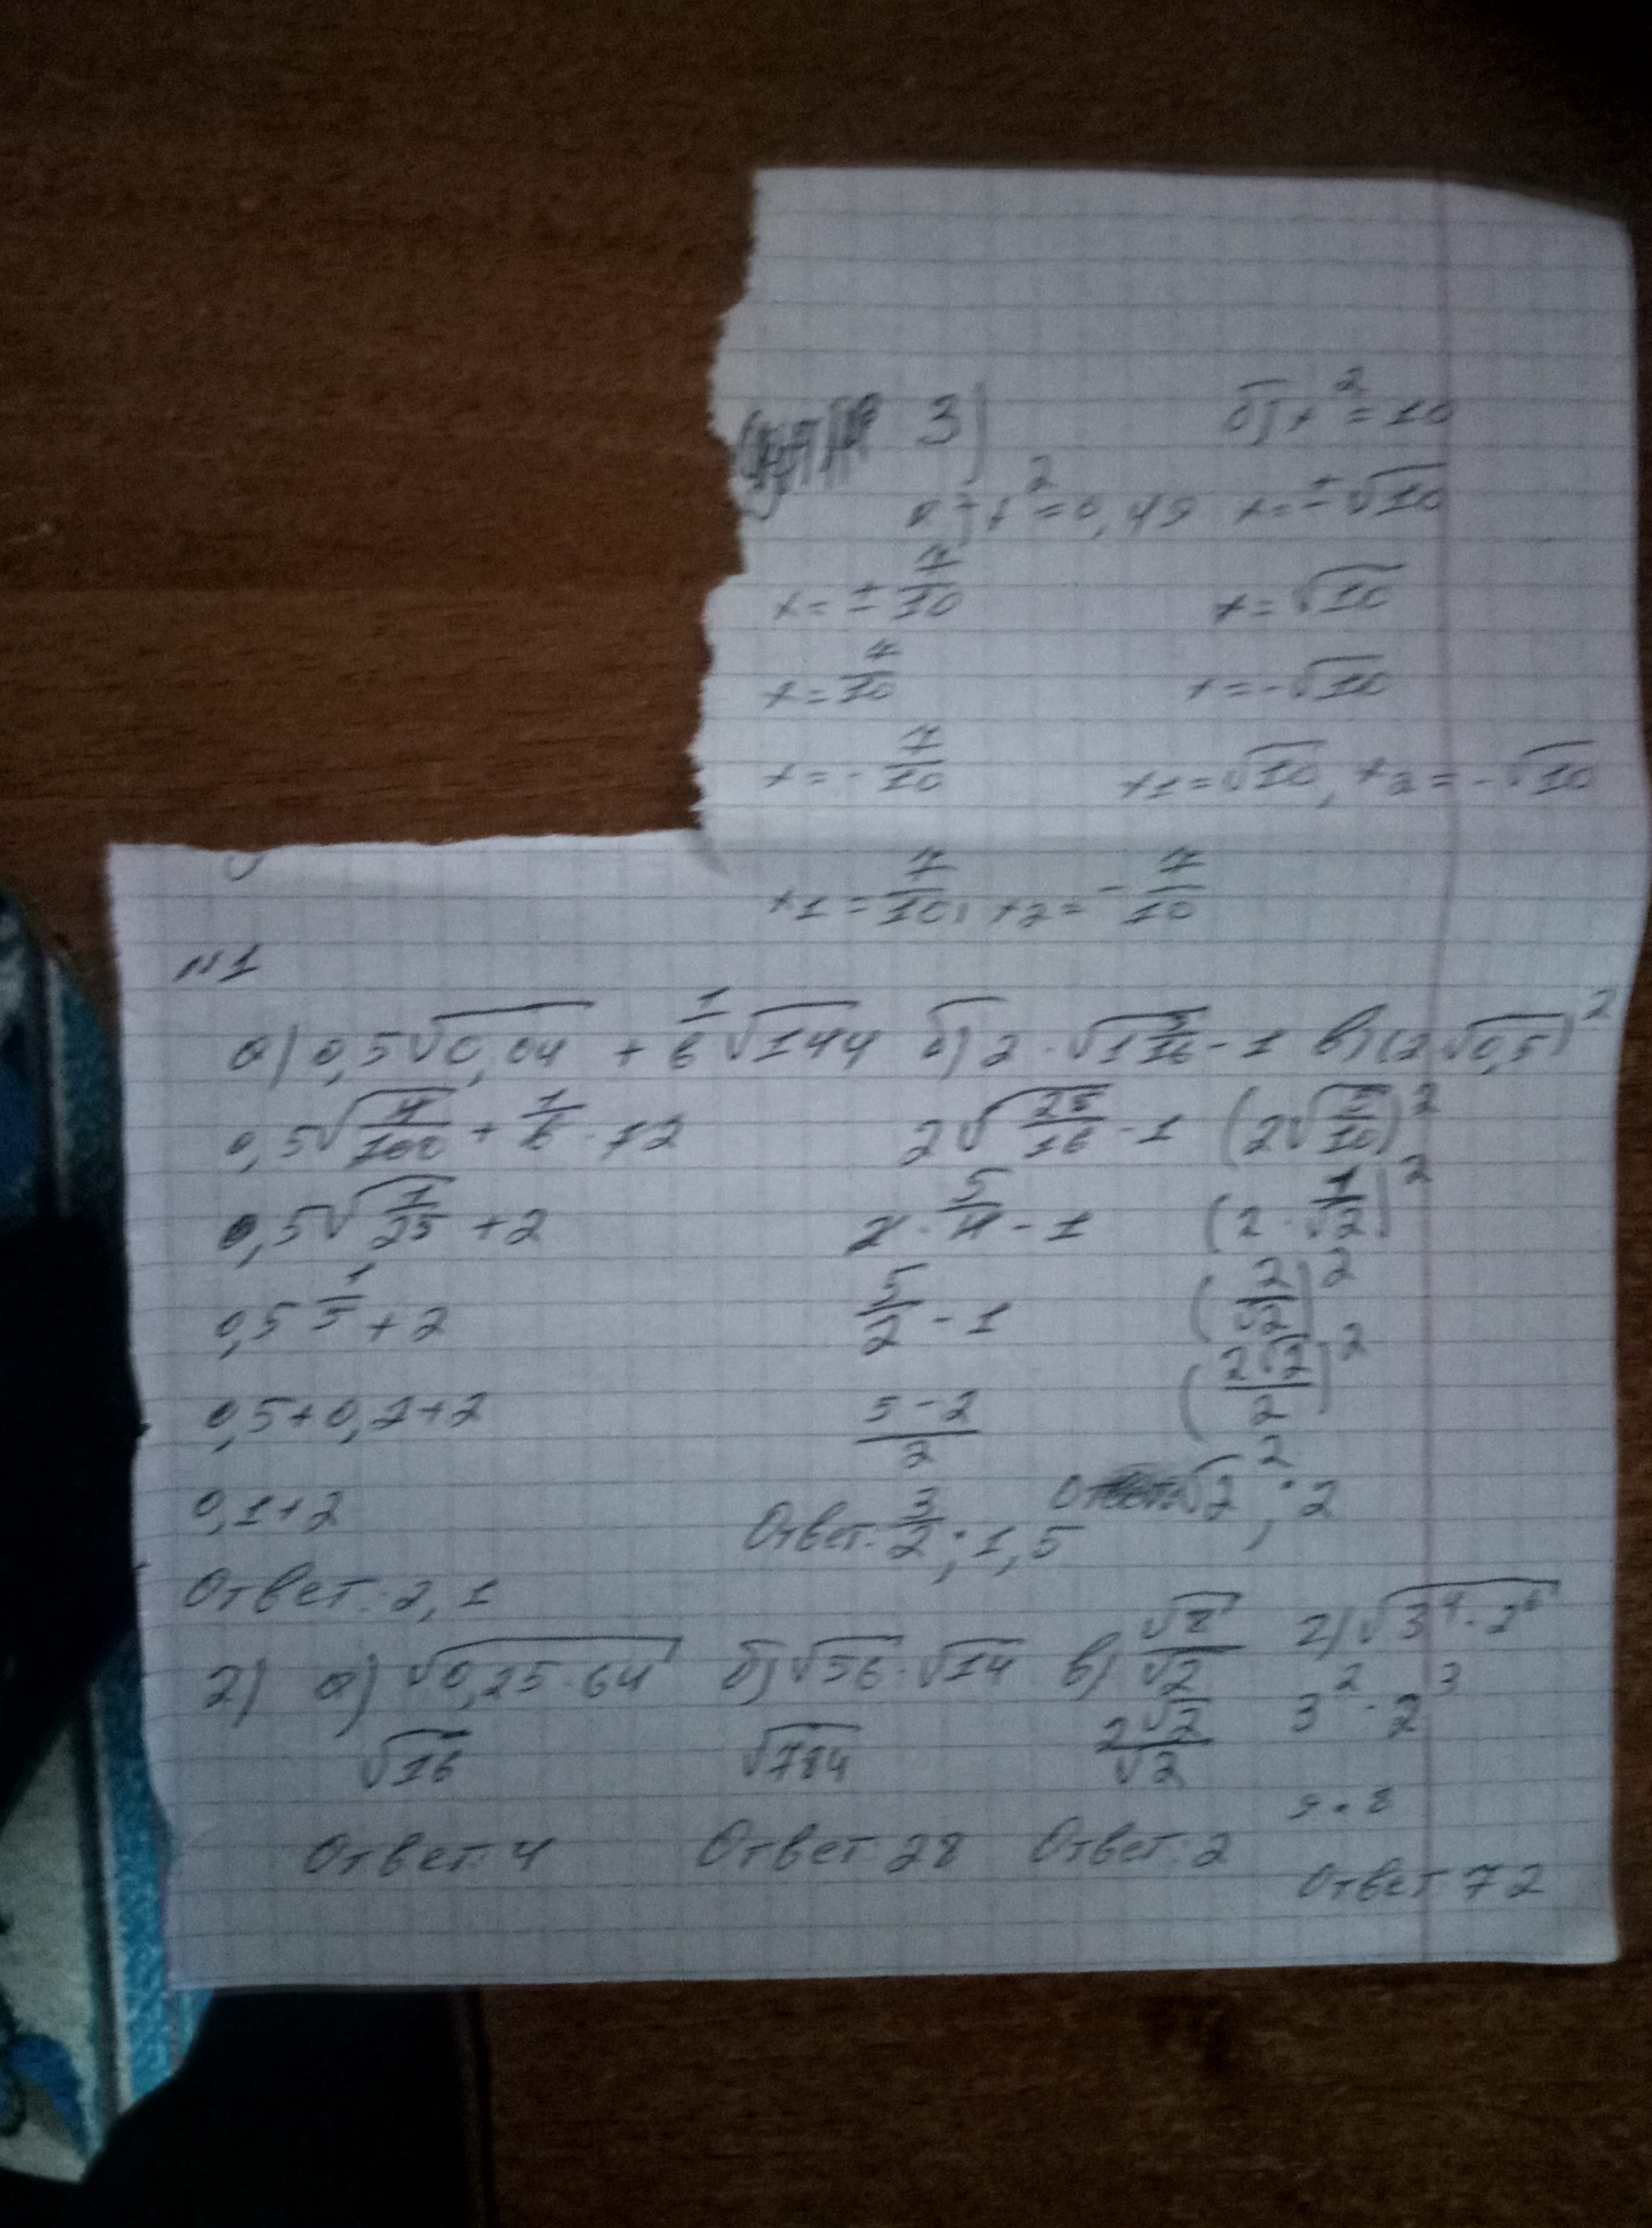 3)
а) x² = 0,49
x = ± 7/10
x = 7/10
x = - 7/10
x1 = 7/10, x2 = - 7/10
б) x² = 10
x = ± √10
x = √10
x = -√10
x1 = √10, x2 = -√10
№1
а) 0,5√0,04 + 1/6 √144
0,5√4/100 + 1/6 · 12
0,5√1/25 + 2
0,5 1/5 + 2
0,5+0,2+2
0,1+2
Ответ: 2,1
б) 2 · √1 9/16 - 1
2√25/16 - 1
2 · 5/4 - 1
5/2 - 1
5-2/2
Ответ: 3/2; 1,5
в) (2√0,5)²
(2√5/10)²
(2 · 1/√2)²
(2/√2)²
(2√2/2)²
√2²; 2
2) а) √0,25·64
√16
Ответ: 4
б) √56 · √14
√784
Ответ: 28
в) √8/√2
2√2/√2
Ответ: 2
г) √3⁴·2⁶
3² · 2³
9·8
Ответ: 72